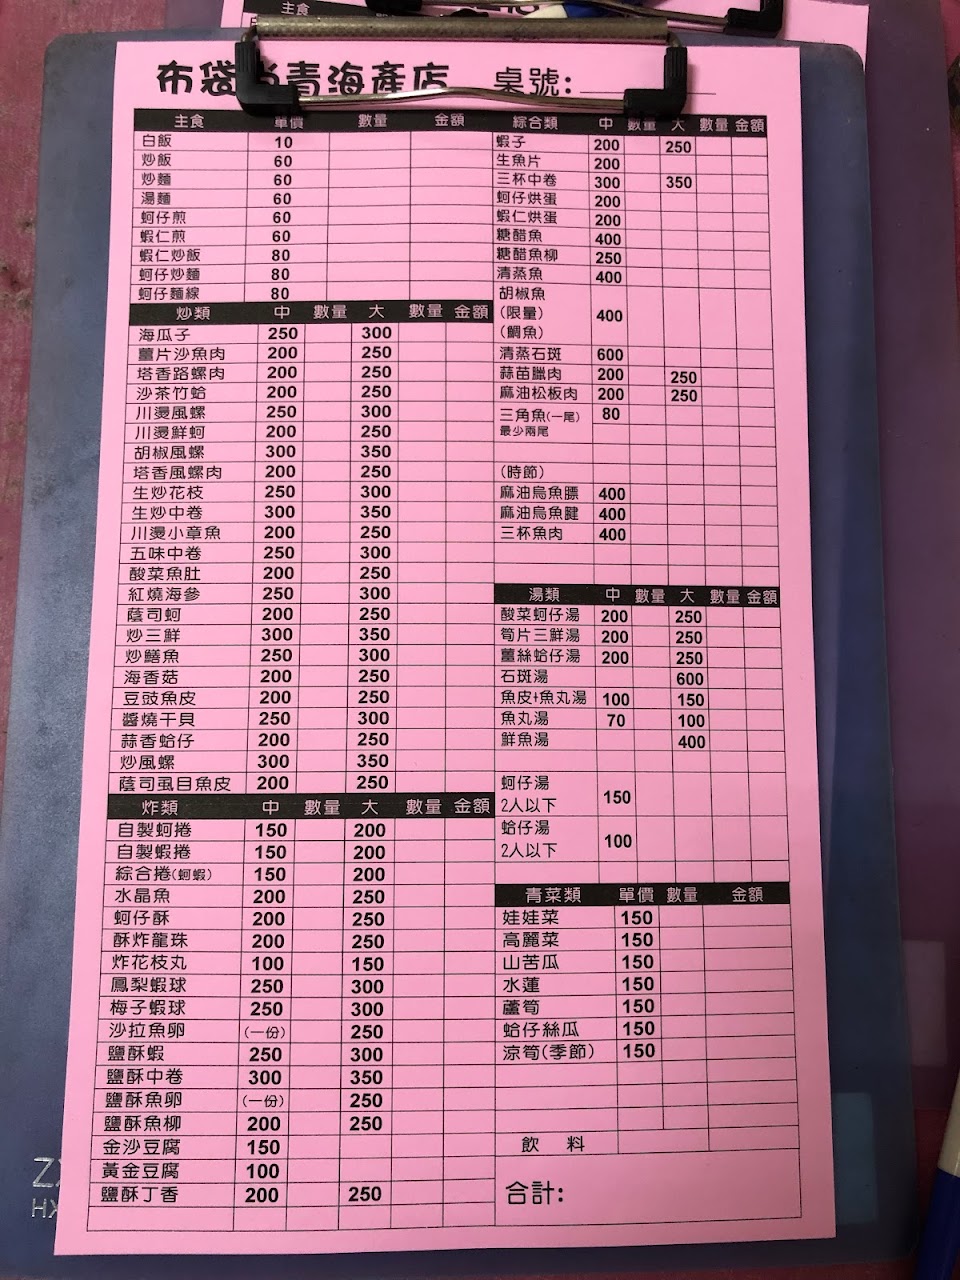 主食
布袋尚青海產店 桌號:
主食 單價 數量 金額
白飯 10
炒飯 60
炒麵 60
湯麵 60
蚵仔煎 60
蝦仁煎 60
蝦仁炒飯 80
蚵仔炒麵 80
蚵仔麵線 80
炒類 中 數量 大 數量 金額
海瓜子 250 300
薑片沙魚肉 200 250
塔香路螺肉 200 250
沙茶竹蛤 200 250
川燙風螺 250 300
川燙鮮蚵 200 250
胡椒風螺 300 350
塔香風螺肉 200 250
生炒花枝 250 300
生炒中卷 300 350
川燙小章魚 200 250
五味中卷 250 300
酸菜魚肚 200 250
紅燒海參 250 300
蔭司蚵 200 250
炒三鮮 300 350
炒鱔魚 250 300
海香菇 200 250
豆豉魚皮 200 250
醬燒干貝 250 300
蒜香蛤仔 200 250
炒風螺 300 350
蔭司虱目魚皮 200 250
炸類 中 數量 大 數量 金額
自製蚵捲 150 200
自製蝦捲 150 200
綜合捲(蚵蝦) 150 200
水晶魚 200 250
蚵仔酥 200 250
酥炸龍珠 200 250
炸花枝丸 100 150
鳳梨蝦球 250 300
梅子蝦球 250 300
沙拉魚卵 (一份) 250
鹽酥蝦 250 300
鹽酥中卷 300 350
鹽酥魚卵 (一份) 250
鹽酥魚柳 200 250
金沙豆腐 150
黃金豆腐 100
鹽酥丁香 200 250
綜合類 中 數量 大 數量 金額
蝦子 200 250
生魚片 200
三杯中卷 300 350
蚵仔烘蛋 200
蝦仁烘蛋 200
糖醋魚 400
糖醋魚柳 250
清蒸魚 400
胡椒魚
(限量) 400
(鯛魚)
清蒸石斑 600
蒜苗臘肉 200 250
麻油松板肉 200 250
三角魚(一尾) 80
最少兩尾
(時節)
麻油烏魚膘 400
麻油烏魚腱 400
三杯魚肉 400
湯類 中 數量 大 數量 金額
酸菜蚵仔湯 200 250
筍片三鮮湯 200 250
薑絲蛤仔湯 200 250
石斑湯 600
魚皮+魚丸湯 100 150
魚丸湯 70 100
鮮魚湯 400
蚵仔湯
2人以下 150
蛤仔湯
2人以下 100
青菜類 單價 數量 金額
娃娃菜 150
高麗菜 150
山苦瓜 150
水蓮 150
蘆筍 150
蛤仔絲瓜 150
涼筍(季節) 150
飲 料
合計: